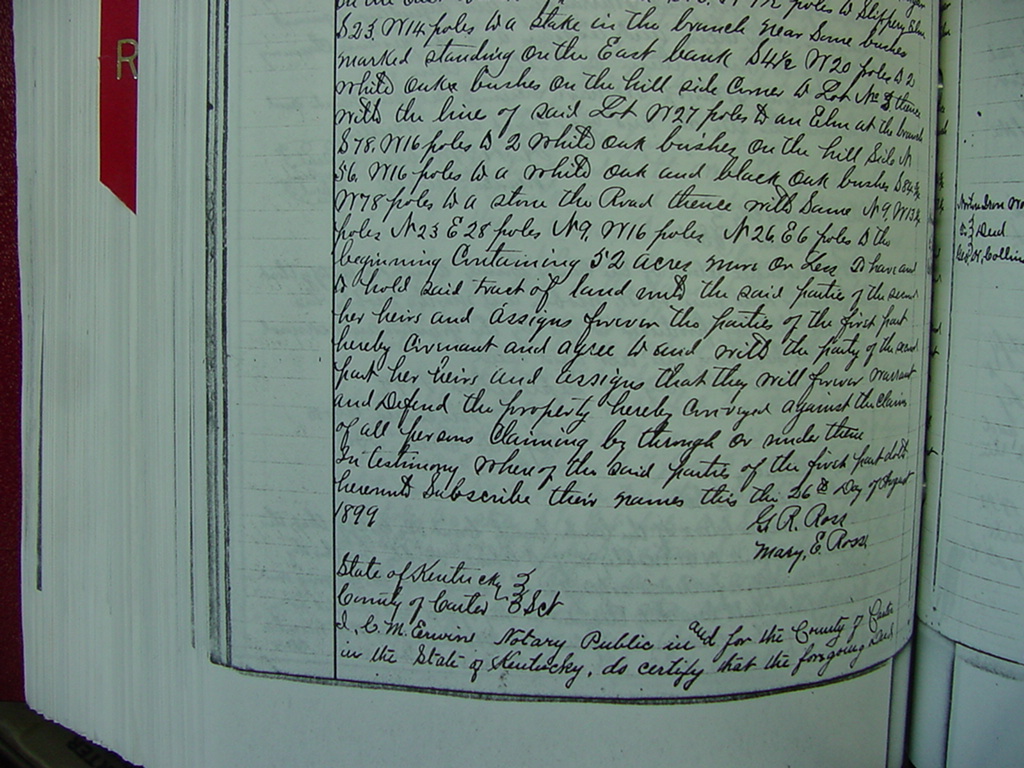 R
poles to Slippery Elm
S 23, W 14 poles to a stake in the branch near Some bushes
marked standing on the East bank S 4½ W 20 poles to 2
white oak bushes on the hill side Corner to Lot No 3 thence
with the line of said Lot W 27 poles to an Elm at the branch
S 78, W 16 poles to 2 white oak bushes on the hill Side N
56, W 16 poles to a white oak and black oak bushes S 84½
W 78 poles to a stone the Road thence with Same N 9, W 13½
poles N 23 E 28 poles N 9, W 16 poles N 26, E 6 poles to the
beginning Containing 52 acres more or Less To have and
to hold said tract of land unto the said parties of the second
her heirs and assigns forever the parties of the first part
hereby Covenant and agree to and with the party of the second
part her heirs and assigns that they will forever warrant
and Defend the property hereby Conveyed against the claim
of all persons Claiming by through or under them
In testimony whereof the said parties of the first part doth
hereunto Subscribe their names this the 26th Day of August
1899
G R. Ross
Mary, E. Ross
State of Kentucky
County of Carter Sct
I, C. M. Erwin Notary Public in and for the County of Carter
in the State of Kentucky, do certify that the foregoing
Deed
Collins